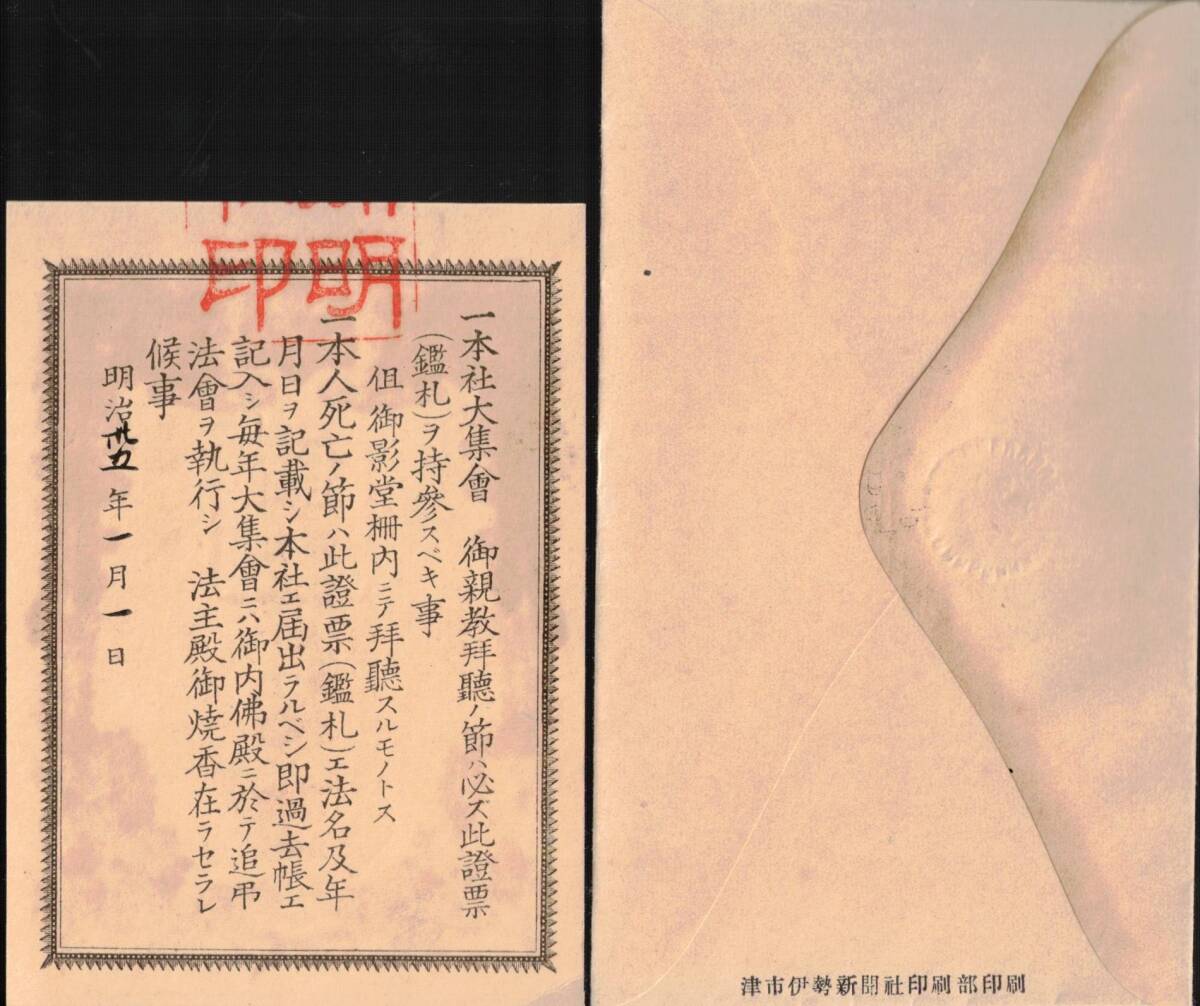 明印
一本社大集會　御親教拜聽ノ節ハ必ズ此證票
(鑑札)ヲ持參スベキ事
但御影堂柵內ニテ拜聽スルモノトス
一本人死亡ノ節ハ此證票(鑑札)エ法名及年
月日ヲ記載シ本社エ届出ラルベシ卽過去帳エ
記入シ每年大集會ニハ御內佛殿ニ於テ追弔
法會ヲ執行シ　法主殿御燒香在ラセラレ
候事
明治卅五年一月一日
津市伊勢新聞社印刷部印刷